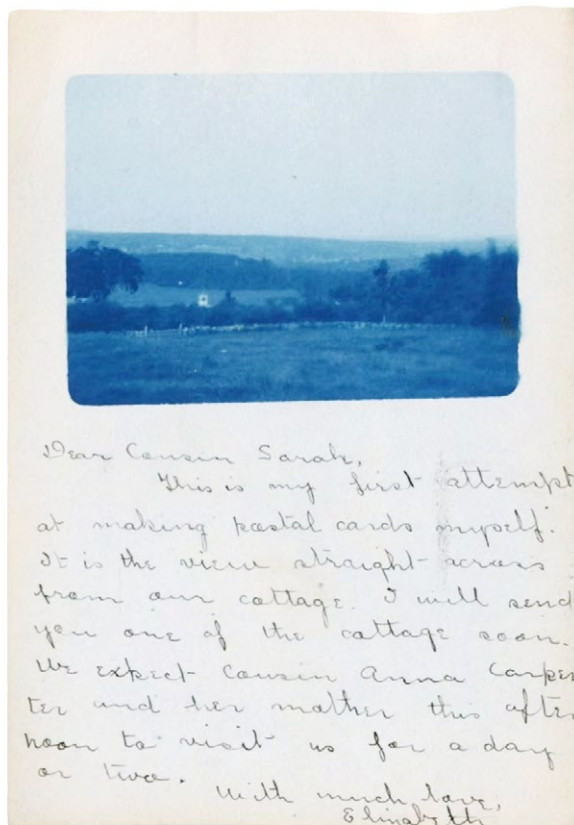 Dear Cousin Sarah,
This is my first attempt
at making postal cards myself.
It is the view straight across
from our cottage. I will send
you one of the cottage soon.
We expect Cousin Anna Carpen
ter and her mother this after
noon to visit us for a day
or two.
With much love,
Elizabeth